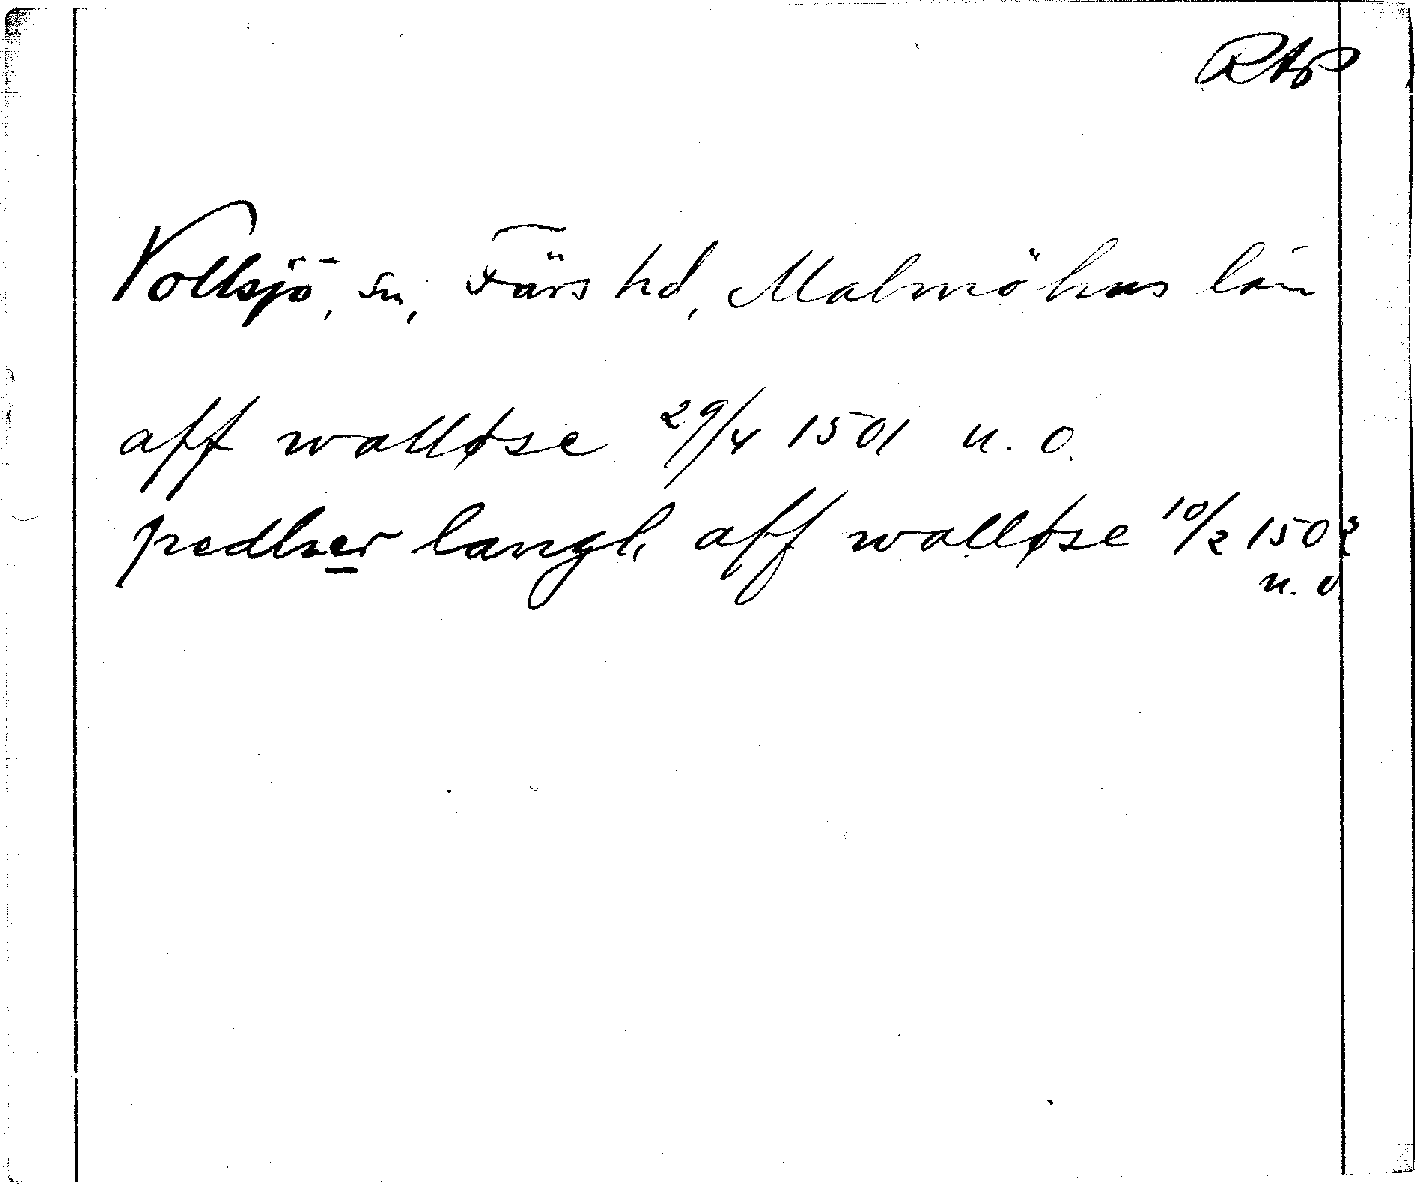 RAP
Vollsjö, sn, Färs hd, Malmöhus län
aff walløse 29/4 1501 u. o.
pedher langh aff walløse 10/2 1502
u. o